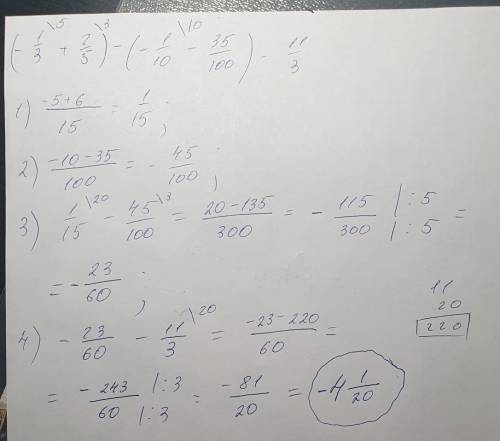 (-1/3 \5 + 2/5 \3) - (-1/10 \10 - 35/100) - 11/3
1) (-5+6)/15 = 1/15 ;
2) (-10-35)/100 = - 45/100 ;
3) 1/15 \20 - 45/100 \3 = (20-135)/300 = - 115/300 |:5 |:5 =
= - 23/60 ;
4) - 23/60 - 11/3 \20 = (-23-220)/60 =
11
20
220
= - 243/60 |:3 |:3 = -81/20 = -4 1/20